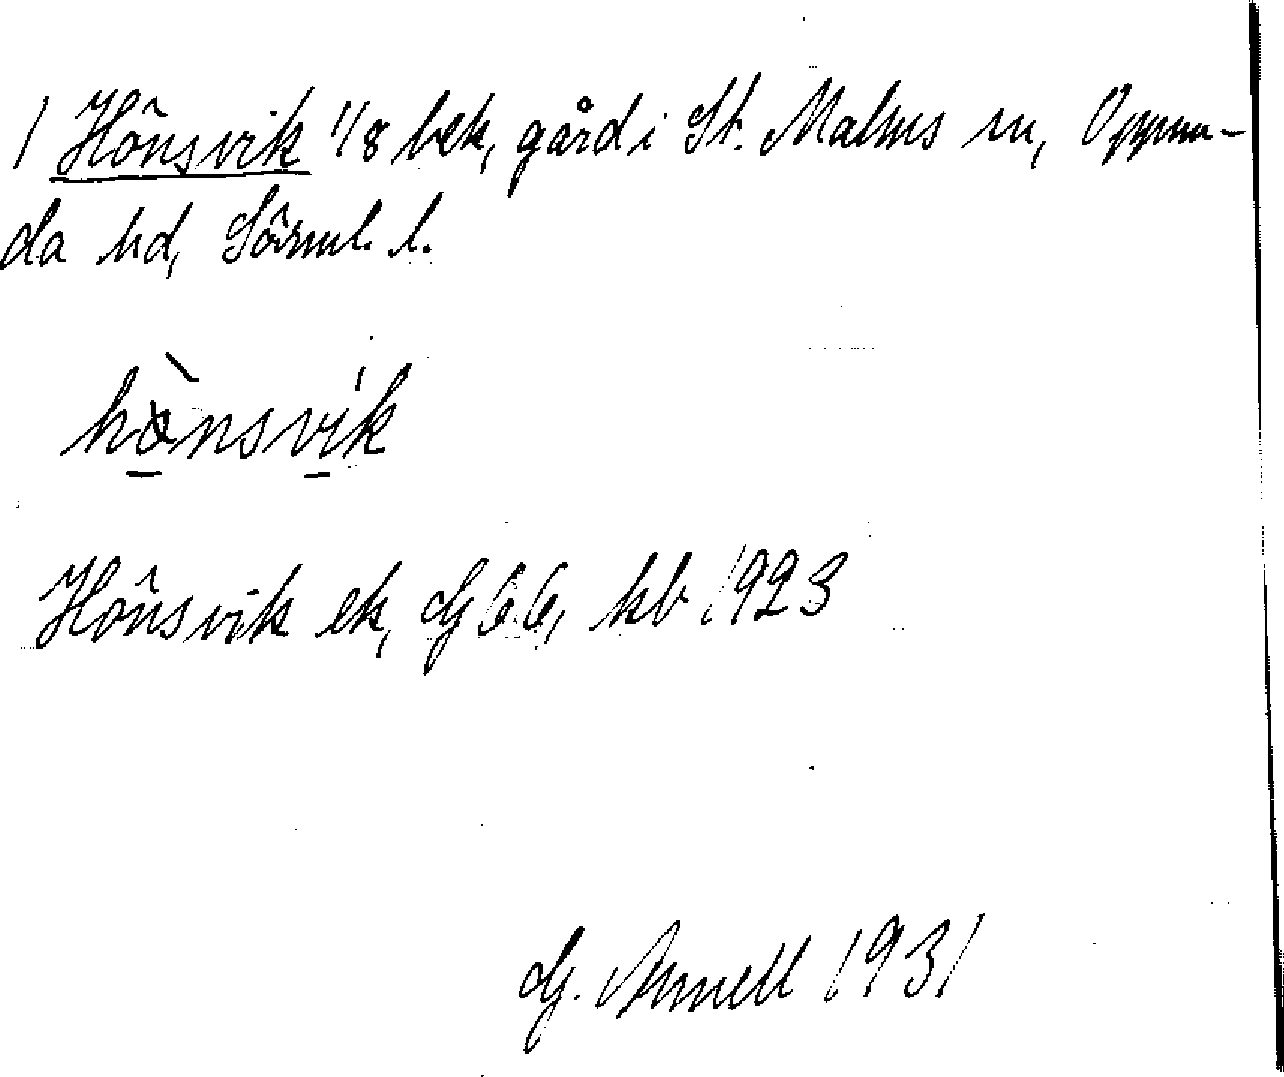 1 Hönsvik 1/8 bek, gård i St. Malms sn, Oppun-
da hd, Sörml. l.
hönsvik
Hönsvik ek, GJ66, kb 1923
G. Arnell 1931